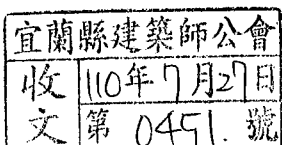 宜蘭縣建築師公會
收文
110年7月27日
第 0451. 號